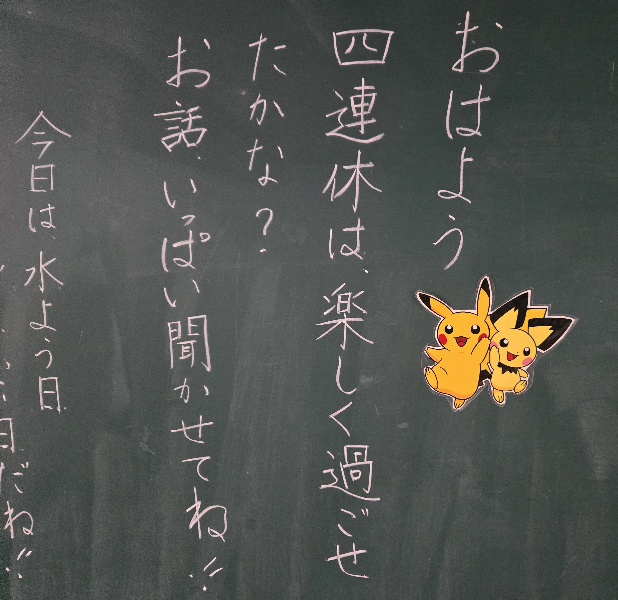 おはよう
四連休は、楽しく過ごせ
たかな？
お話、いっぱい聞かせてね!!
今日は、水よう日
日だね!!